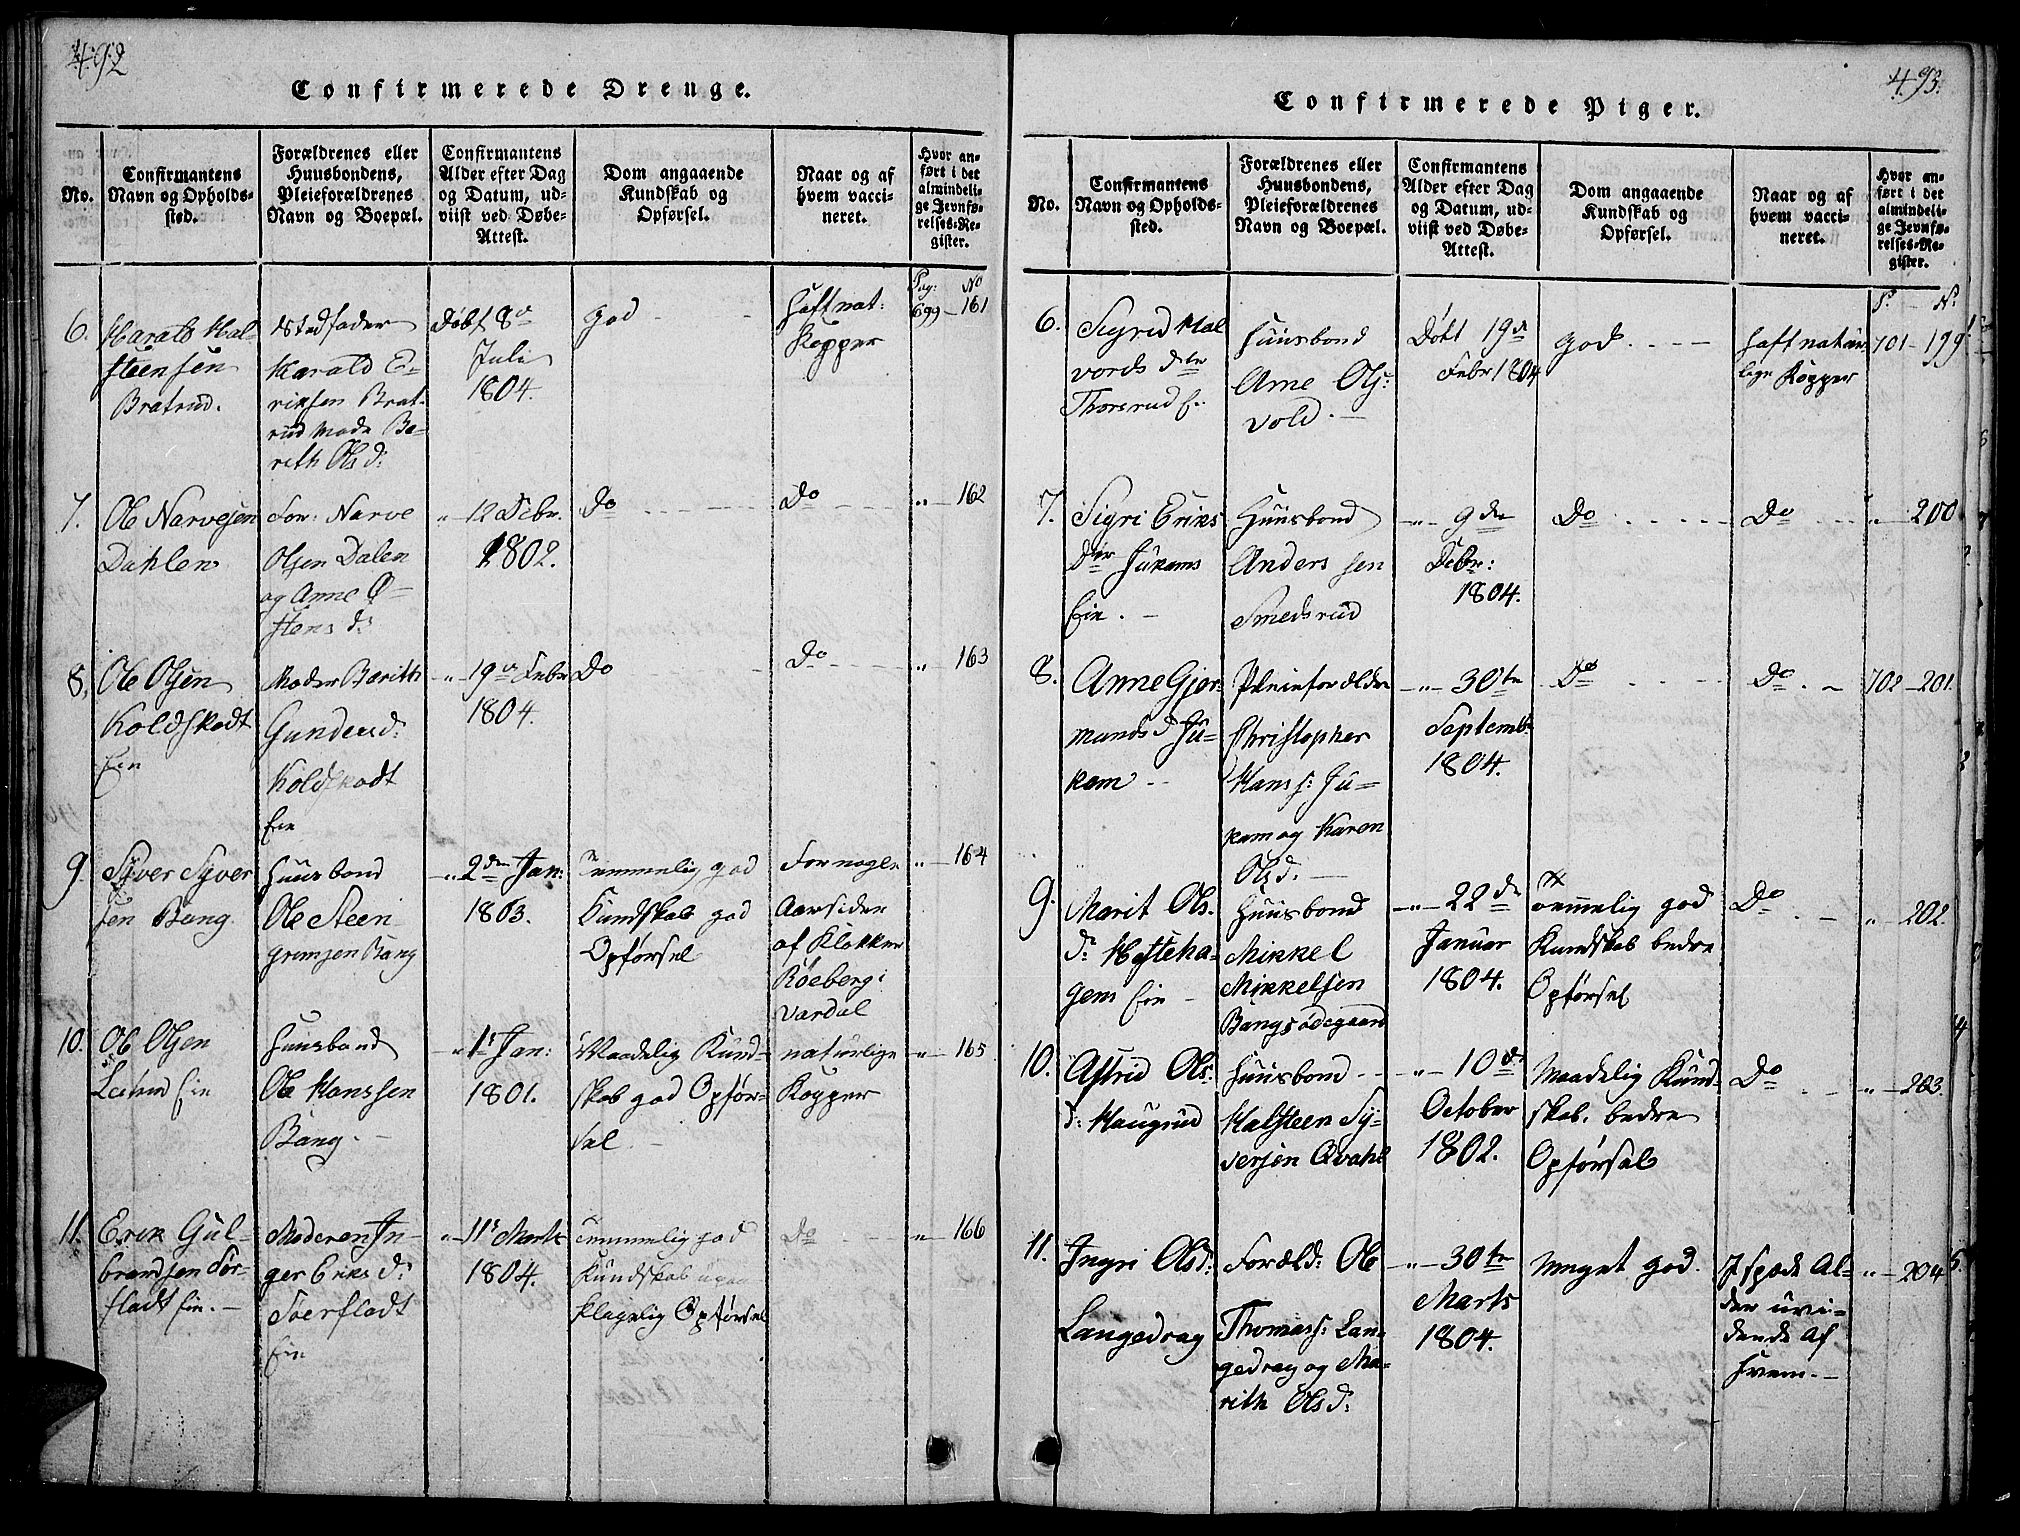 492
Confirmerede Drenge.
No.
Confirmantens
Navn og Opholds-
sted.
Forældrenes eller
Huusbondens,
Pleieforældrenes
Navn og Boepæl.
Confirmantens
Alder efter Dag
og Datum, ud-
viist ved Døbe-
Attest.
Dom angaaende
Kundskab og
Opførsel.
Naar og af
hvem vacci-
neret.
Hvor an-
ført i det
almindeli-
ge Jevnfø-
relses-Re-
gister.
Pag: No
6.
Harald Hal-
steensen
Bratrud.
Stedfader
Harald E-
riksen Brat-
rud Mode Be-
rith Ols d:
Døbt 8de
Juli
1804.
god
Haft nat:
Kopper
699 – 161
7.
Ole Narvesen
Dahlen
For: Narve
Olsen Dalen
og Anne O-
stens d:
" 12 Debr.
1802.
Do
Do
" – 162
8.
Ole Olsen
Koldskodt
Eie
Moder Berith
Gunders d:
Koldskodt
Eie
" 19de Febr
1804.
Do
Do
" 163
9.
Syver Syver
sen Bang.
Huusbond
Ole Steen
grimsen Bang
" 2den Jan:
1803.
Temmelig god
Kundskab god
Opførsel
For nogle
Aar siden
af Klokker
Røeberg i
Vardal
" – 164
10.
Ole Olsen
Eie
Huusbond
Ole Hanssen
Bang. –
" 1s Jan:
1801.
Maadelig Kund-
skab god Opfør-
sel –
naturlige
Kopper
" – 165
11.
Erik Gul-
brandsen
Eie. –
Moderen In-
ger Eriks d:
Eie
" 11s Marts
1804.
Temmelig god
Kundskab upaa
klagelig Opførsel
Do
" – 166
493.
Confirmerede Piger.
No.
Confirmantens
Navn og Opholds-
sted.
Forældrenes eller
Huusbondens,
Pleieforældrenes
Navn og Boepæl.
Confirmantens
Alder efter Dag
og Datum, ud-
viist ved Døbe-
Attest.
Dom angaaende
Kundskab og
Opførsel.
Naar og af
hvem vacci-
neret.
Hvor an-
ført i det
almindeli-
ge Jevnfø-
relses-Re-
gister.
P. – N.
6.
Sigrid Hal
vords dtr
Thorsrud E:
Huusbond
Arne Ols:
Vold. –
Døbt 19de
Febr 1804
god. – – –
Haft natur
lige Kopper
701 – 199
7.
Sigri Eriks
dtr Jukams
Eie. –
Huusbond
Anders sen
Smedsrud
" 9de
Debr:
1804.
Do
Do
" – 200
8.
Anne Gjer-
munds d Ju-
kam –
Pleieforældre
Christopher
Hans s: Ju-
kam og Karen
Ols d. –
" 30te
Septembr
1804.
Do
Do
702 – 201.
9.
Marit Ols.
d:
Eie –
Huusbond
Mikkel
Mikkelsen
Bangsødegaard
" 22de
Januar
1804.
Temmelig god
Kundskab bedre
Opførsel
Do
" – 202.
10.
Astrid Ols.
d: Haugrud
Huusbond
Halsteen Sy-
versen Qvahl
" 10de
October
1802.
Maadelig Kund-
skab. bedre
Opførsel
Do
" – 203.
11.
Ingri Olsd:
Langedrag
Foræld: Ole
Thomas s: Lan-
gedrag og Ma-
rith Ols d:
" 30te
Marts
1804.
Meget god.
I spæde Al-
der uvi-
dende af
hvem. –
" – 204